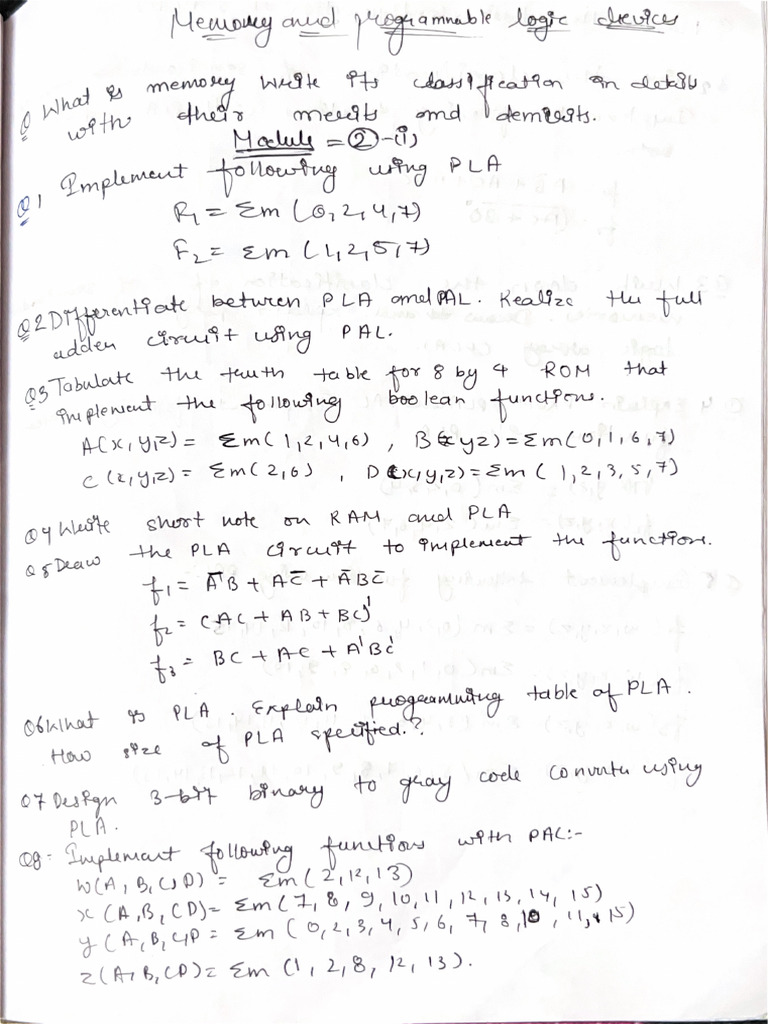 Memory and programmable logic devices
Q What is memory write its classification in details
with their merits and demerits.
Module = ②-(i)
Q1 Implement following using PLA
F₁ = Σm (0,2,4,7)
F₂ = Σm (1,2,5,7)
Q2 Differentiate between PLA and PAL. Realize the full
adder circuit using PAL.
Q3 Tabulate the truth table for 8 by 4 ROM that
implement the following boolean functions.
A(x,y,z) = Σm(1,2,4,6) , B(xyz) = Σm(0,1,6,7)
C(x,y,z) = Σm(2,6) , D(x,y,z) = Σm(1,2,3,5,7)
Q4 Write short note on RAM and PLA
Q5 Draw the PLA circuit to implement the function.
f₁ = A̅'B + AC̅ + A̅BC̅
f₂ = (AC + AB + BC)'
f₃ = BC + AC + A'BC'
Q6 What is PLA. Explain programming table of PLA.
How size of PLA specified.?
Q7 Design 3-bit binary to gray code convertu using
PLA.
Q8- Implement following functions with PAL:-
W(A,B,C,D) = Σm(2,12,13)
x(A,B,CD) = Σm(7,8,9,10,11,12,13,14,15)
y(A,B,C,D = Σm(0,2,3,4,5,6,7,8,10,11,15)
z(A,B,CD) = Σm(1,2,8,12,13).